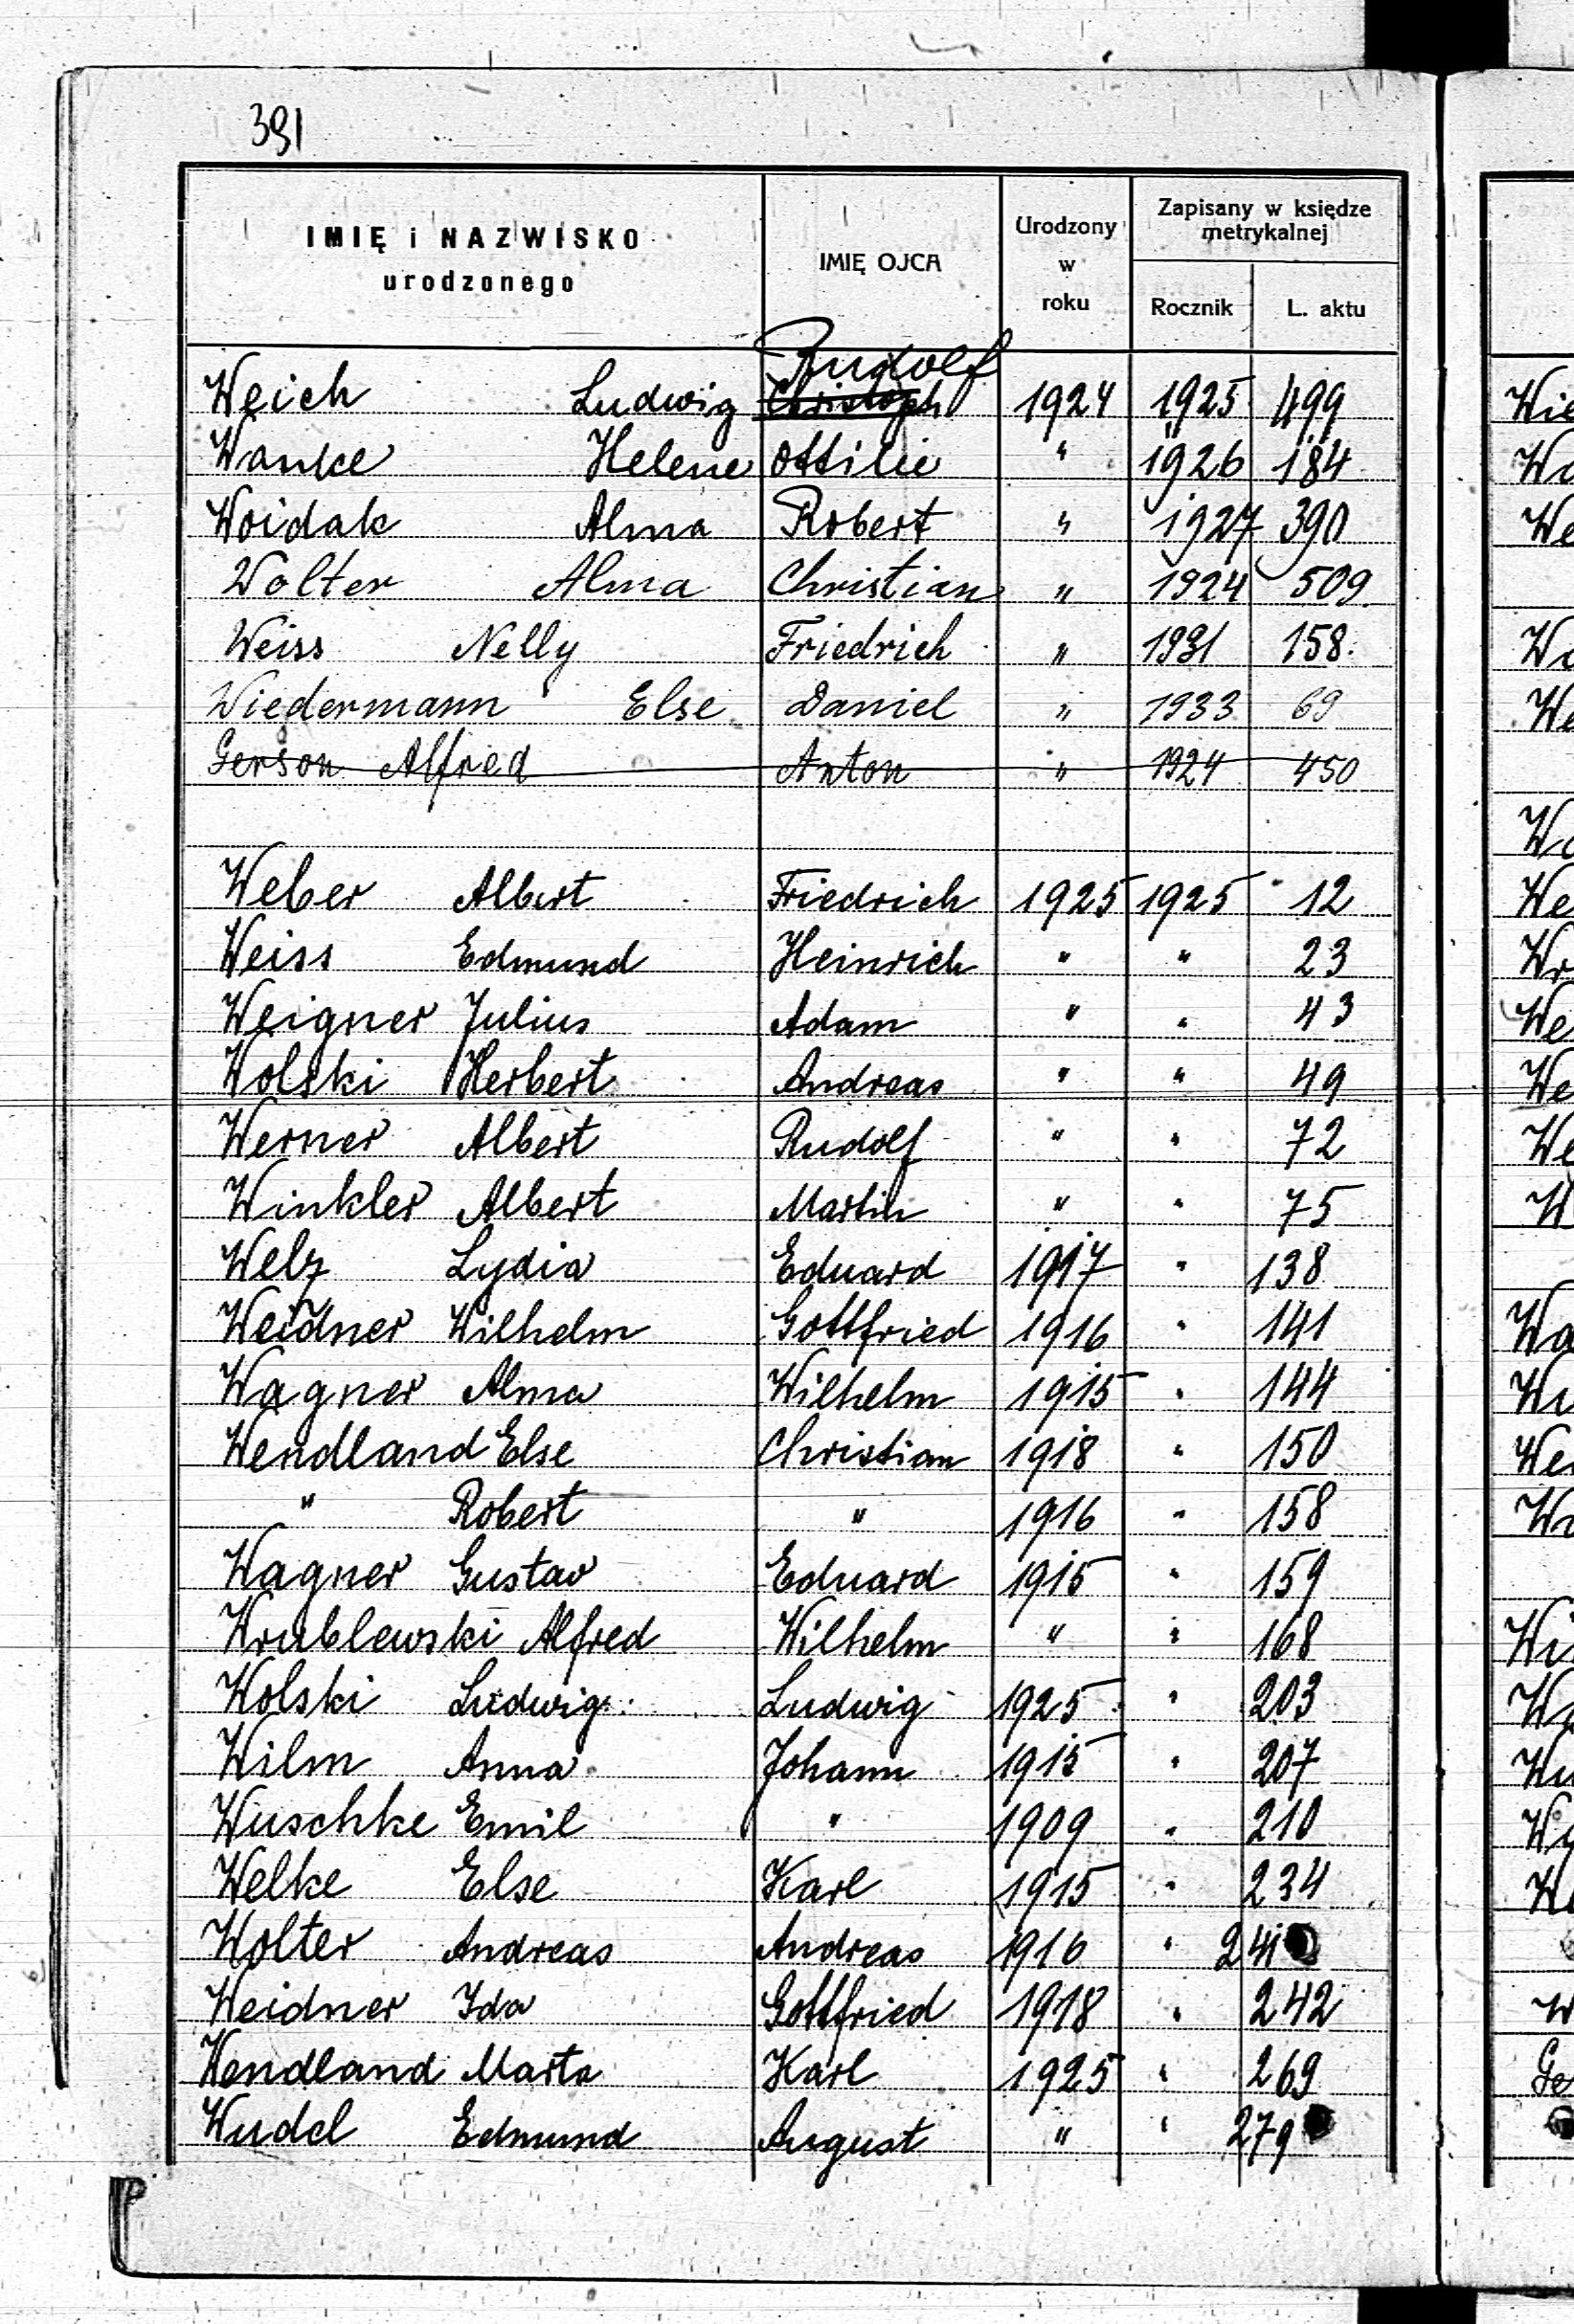 391
IMIĘ i NAZWISKO urodzonego | IMIĘ OJCA | Urodzony w roku | Zapisany w księdze metrykalnej
Rocznik | L. aktu
Rudolf
Weich Ludwig Christoph 1924 1925 499
Wanke Helene Ottilie " 1926 184
Woidak Alma Robert " 1927 390
Wolter Alma Christian " 1924 509
Weiss Nelly Friedrich " 1931 158
Wiedermann Else Daniel " 1933 69
Gerson Alfred Anton " 1924 450
Weber Albert Friedrich 1925 1925 12
Weiss Edmund Heinrich " " 23
Weigner Julius Adam " " 43
Wolski Herbert Andreas " " 49
Werner Albert Rudolf " " 72
Winkler Albert Martin " " 75
Welz Lydia Eduard 1917 " 138
Weidner Wilhelm Gottfried 1916 " 141
Wagner Alma Wilhelm 1915 " 144
Wendland Else Christian 1918 " 150
" Robert " 1916 " 158
Wagner Gustav Eduard 1915 " 159
Wrublewski Alfred Wilhelm " " 168
Wolski Ludwig Ludwig 1925 " 203
Wilm Anna Johann 1915 " 207
Wuschke Emil " 1909 " 210
Welke Else Karl 1915 " 234
Wolter Andreas Andreas 1916 " 241
Weidner Ida Gottfried 1918 " 242
Wendland Marta Karl 1925 " 269
Wudel Edmund August " " 279